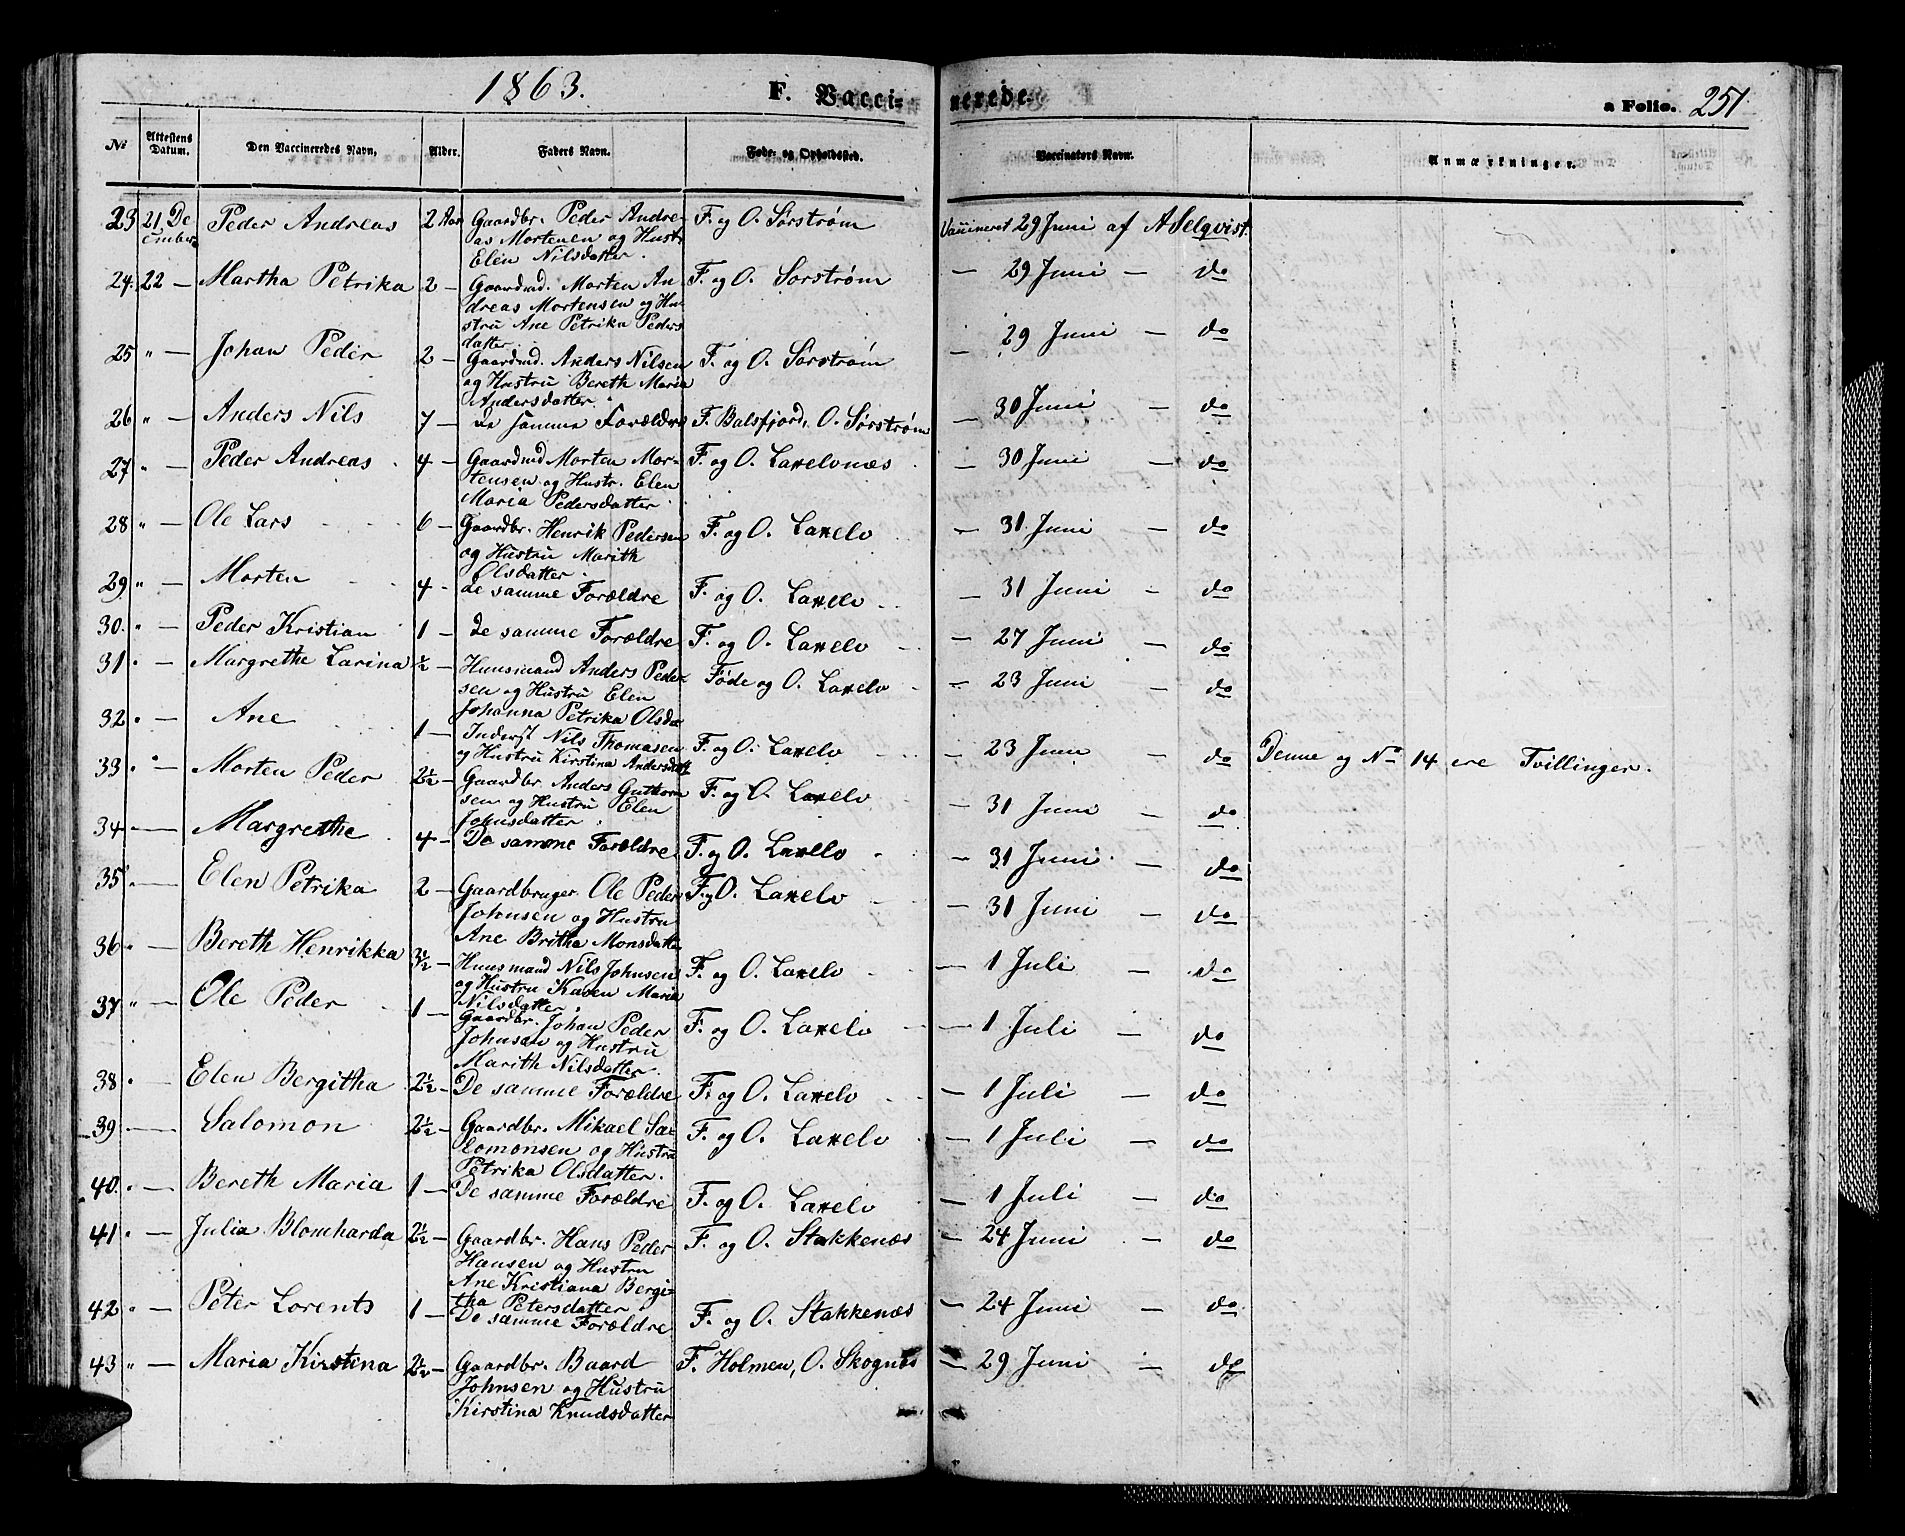 1863. F. Vacci- nerede. a Folio. 251
No Attestens Datum. Den Vaccineredes Navn. Alder. Faders Navn. Føde- og Opholdssted. Vaccinators Navn. Anmærkninger.
23 21 De Peder Andreas 2 Aar Gaardbr. Peder Andre- F. og O. Sørstrøm Vaccineret 29 Juni af A Selqvist
cember as Mortenen og Hustr
Elen Nilsdatter.
24. 22 — Martha Petrika 2 — Gaardmd. Morten An F. og O. Sorstrøm — 29 Juni — do
dreas Mortensen og Hu-
stru Ane Petrika Peders
datter.
25 " — Johan Peder 2 — Gaardmd. Anders Nilsen F. og O. Sørstrøm — 29 Juni — do
og Hustru Bereth Maria
Andersdatter.
26 " — Anders Nils 7 — De samme Forældre F. Balsfjord, O. Sørstrøm — 30 Juni — do
27 " — Peder Andreas 4 — Gaardmd Morten Mor- F. og O. Lavelvnæs — 30 Juni — do
tensen og Hustr. Elen
Maria Pedersdatter.
28 " — Ole Lars 6 — Gaardbr. Henrik Pedersen F. og O. Lavelv — 31 Juni — do
og Hustru Marith
Olsdatter.
29 " — Morten 4 — de samme Forældre F. og O. Lavelv — 31 Juni — do
30. " — Peder Kristian 1 — de samme Forældre F. og O. Lavelv — 27 Juni — do
31 " — Margrethe Larina ½ — Huusmand Anders Peder- Føde og O. Lavelv — 23 Juni — do
sen og Hustru Elen
Johanna Petrika Olsda
32 " — Ane 1 — Inderst Nils Thomasen F. og O. Lavelv — 23 Juni — do Denne og No 14 ere Tvillinger.
og Hustru Kirstina Andersdatt
33 " — Morten Peder 2½ — Gaardbr. Anders Guttorm F. og O. Lavelv — 31 Juni — do
sen og Hustru Elen
Johnsdatter.
34 — Margrethe 4 — De samme Forældre F. og O. Lavelv — 31 Juni — do
35 — Elen Petrika 2 — Gaardbruger. Ole Peder F. og O. Lavelv — 31 Juni — do
Johnsen og Hustru
Ane Britha Monsdatte
36 " — Bereth Henrikka 3½ — Huusmand Nils Johnsen F. og O. Lavelv — 1 Juli — do
og Hustru Karen Maria
Nilsdatter.
37 " — Ole Peder 1 — Gaardbr. Johan Peder F. og O. Lavelv — 1 Juli — do
Johnsen og Hustru
Marith Nilsdatter.
38 " — Elen Bergitha 2½ — De samme Forældre F. og O. Lavelv — 1 Juli — do
39 — Salomon 2½ — Gaardbr. Mikael Sa- F. og O. Lavelv — 1 Juli — do
lomonsen og Hustru
Petrika Olsdatter.
40. " — Bereth Maria 1 — De samme Forældre F. og O. Lavelv — 1 Juli — do
41 " — Julia Blomharda 2½ — Gaardbr. Hans Peder F. og O. Stakkenæs — 24 Juni — do
Hansen og Hustru
Ane Kristiana Bergi-
tha Petersdatter
42 " — Peter Lorents 1 — De samme Forældre F. og O. Stakkenæs — 24 Juni — do
43 " — Maria Kirstina 2½ — Gaardbr. Baard F. Holmen, O. Skognæs — 29 Juni — do
Johnsen og Hustru
Kirstina Knudsdatter